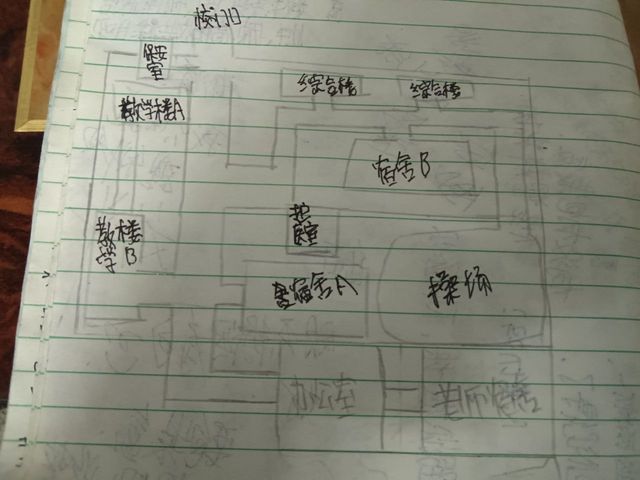 校门口
保安
室
综合楼
综合楼
教学楼A
宿舍B
教楼
学B
宿舍A
操场
办公室
老师宿舍